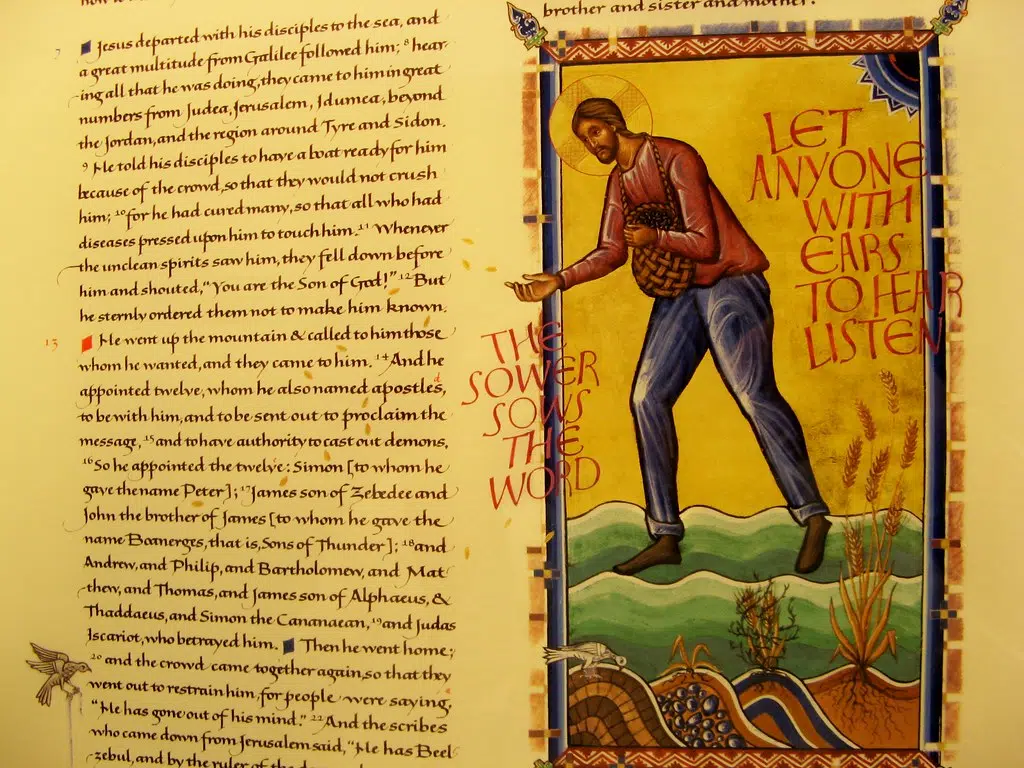 7 Jesus departed with his disciples to the sea, and
a great multitude from Galilee followed him; 8 hear-
ing all that he was doing, they came to him in great
numbers from Judea, Jerusalem, Idumea, beyond
the Jordan, and the region around Tyre and Sidon.
9 He told his disciples to have a boat ready for him
because of the crowd, so that they would not crush
him; 10 for he had cured many, so that all who had
diseases pressed upon him to touch him. 11 Whenever
the unclean spirits saw him, they fell down before
him and shouted, "You are the Son of God!" 12 But
he sternly ordered them not to make him known.
13 He went up the mountain & called to him those
whom he wanted, and they came to him. 14 And he
appointed twelve, whom he also named apostles,
to be with him, and to be sent out to proclaim the
message, 15 and to have authority to cast out demons.
16 So he appointed the twelve: Simon [to whom he
gave the name Peter]; 17 James son of Zebedee and
John the brother of James [to whom he gave the
name Boanerges, that is, Sons of Thunder]; 18 and
Andrew, and Philip, and Bartholomew, and Mat
thew, and Thomas, and James son of Alphaeus, &
Thaddaeus, and Simon the Cananaean, 19 and Judas
Iscariot, who betrayed him. Then he went home;
20 and the crowd came together again, so that they
went out to restrain him, for people were saying,
"He has gone out of his mind." 22 And the scribes
who came down from Jerusalem said, "He has Beel
zebul, and by the ruler of the
brother and sister and mother.
LET
ANYONE
WITH
EARS
TO HEAR
LISTEN
THE
SOWER
SOWS
THE
WORD